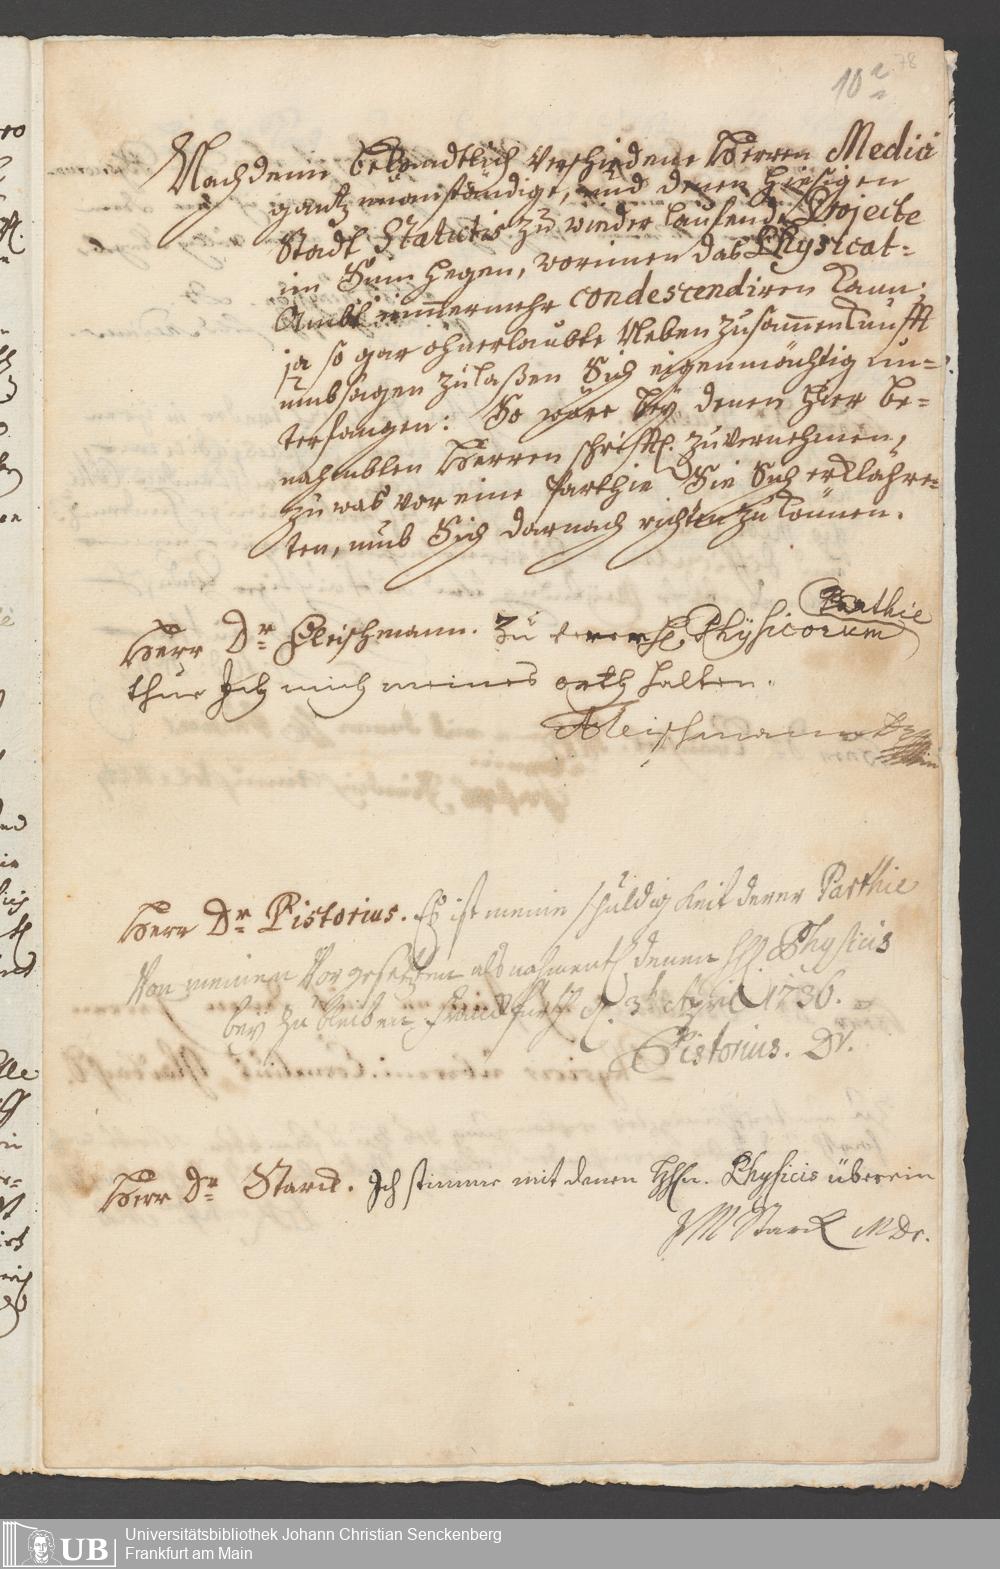 10 a 78
Nachdeme bekandtlich verschiedene Herren Medici
gantz unanständige, und denen hiesigen
Stadt Statutis zu wieder laufende Projecte
im Sinn hegen, worinnen das Physicat-
Ambt nimmermehr condescendiren kann;
ja so gar ohnerlaubte Neben Zusammenkunfft
umbsagen zu laßen Sich eigenmächtig un-
terfangen: So wäre bey denen hier be-
nahmbten Herren schrifftl. zu vernehmen,
zu was vor eine Parthie Sie Sich erklähre-
ten, umb Sich darnach richten zu können.
Herr Dr Fleischmann. Zu derer H. Physicorum Parthie
thue Ich mich meines orths halten.
Fleischmann Dr
Herr Dr Pistorius. Es ist meine schuldigkeit derer Parthie
von meinen Vorgesetzten als nahmentl. denen HH. Physicis
bey zu bleiben. Franckfurth d. 3t April 1736.
Pistorius. Dr.
Herr Dr Starck. Ich stimme mit denen HHn. Physicis überein
JM Starck MDr.
UB
Universitätsbibliothek Johann Christian Senckenberg
Frankfurt am Main